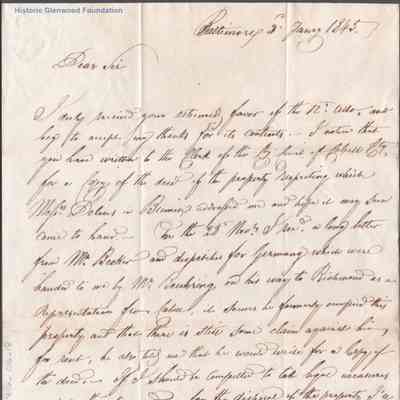 Historic Glenwood Foundation
Baltimore, 3d Jany 1845.
Dear Sir
I duly received your esteemed favor of the 12th Ulto, and
beg to accept my thanks for its contents. – I notice that
you have written to the Clerk of the Cy Court of Cabell Cty.
for a Copy of the deed of the property respecting which
Messrs in Bremen addressed me and hope it may soon
come to hand. – On the 25th Novr. I recd. a long letter
from Mr. Becker and dispatches for Germany which were
handed to me by Mr. on his way to Richmond as a
Representative from Cabell, it seems he formerly occupied this
property and that there is still some claim against him
for rent, he also told me that he would write for a Copy of
the deed. – If I should be compelled to take legal measures
for the disposal of the property I'll